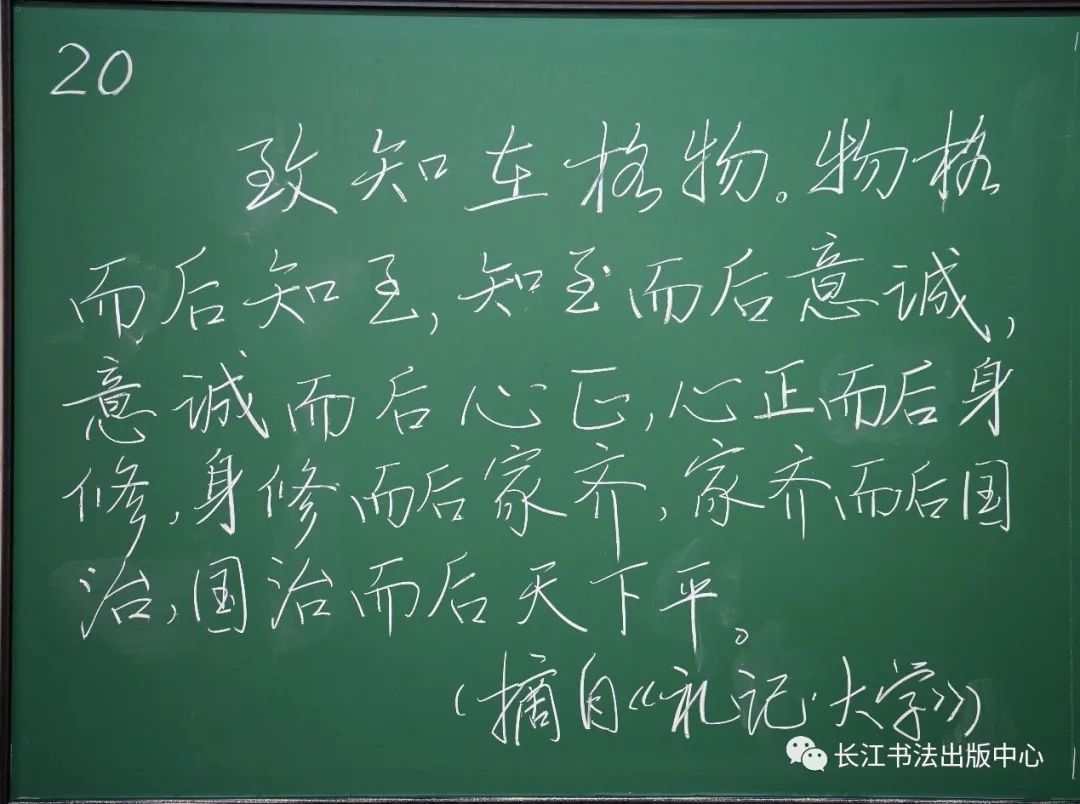 20
致知在格物。物格
而后知至,知至而后意诚,
意诚而后心正,心正而后身
修,身修而后家齐,家齐而后国
治,国治而后天下平。
(摘自《礼记·大学》)
长江书法出版中心